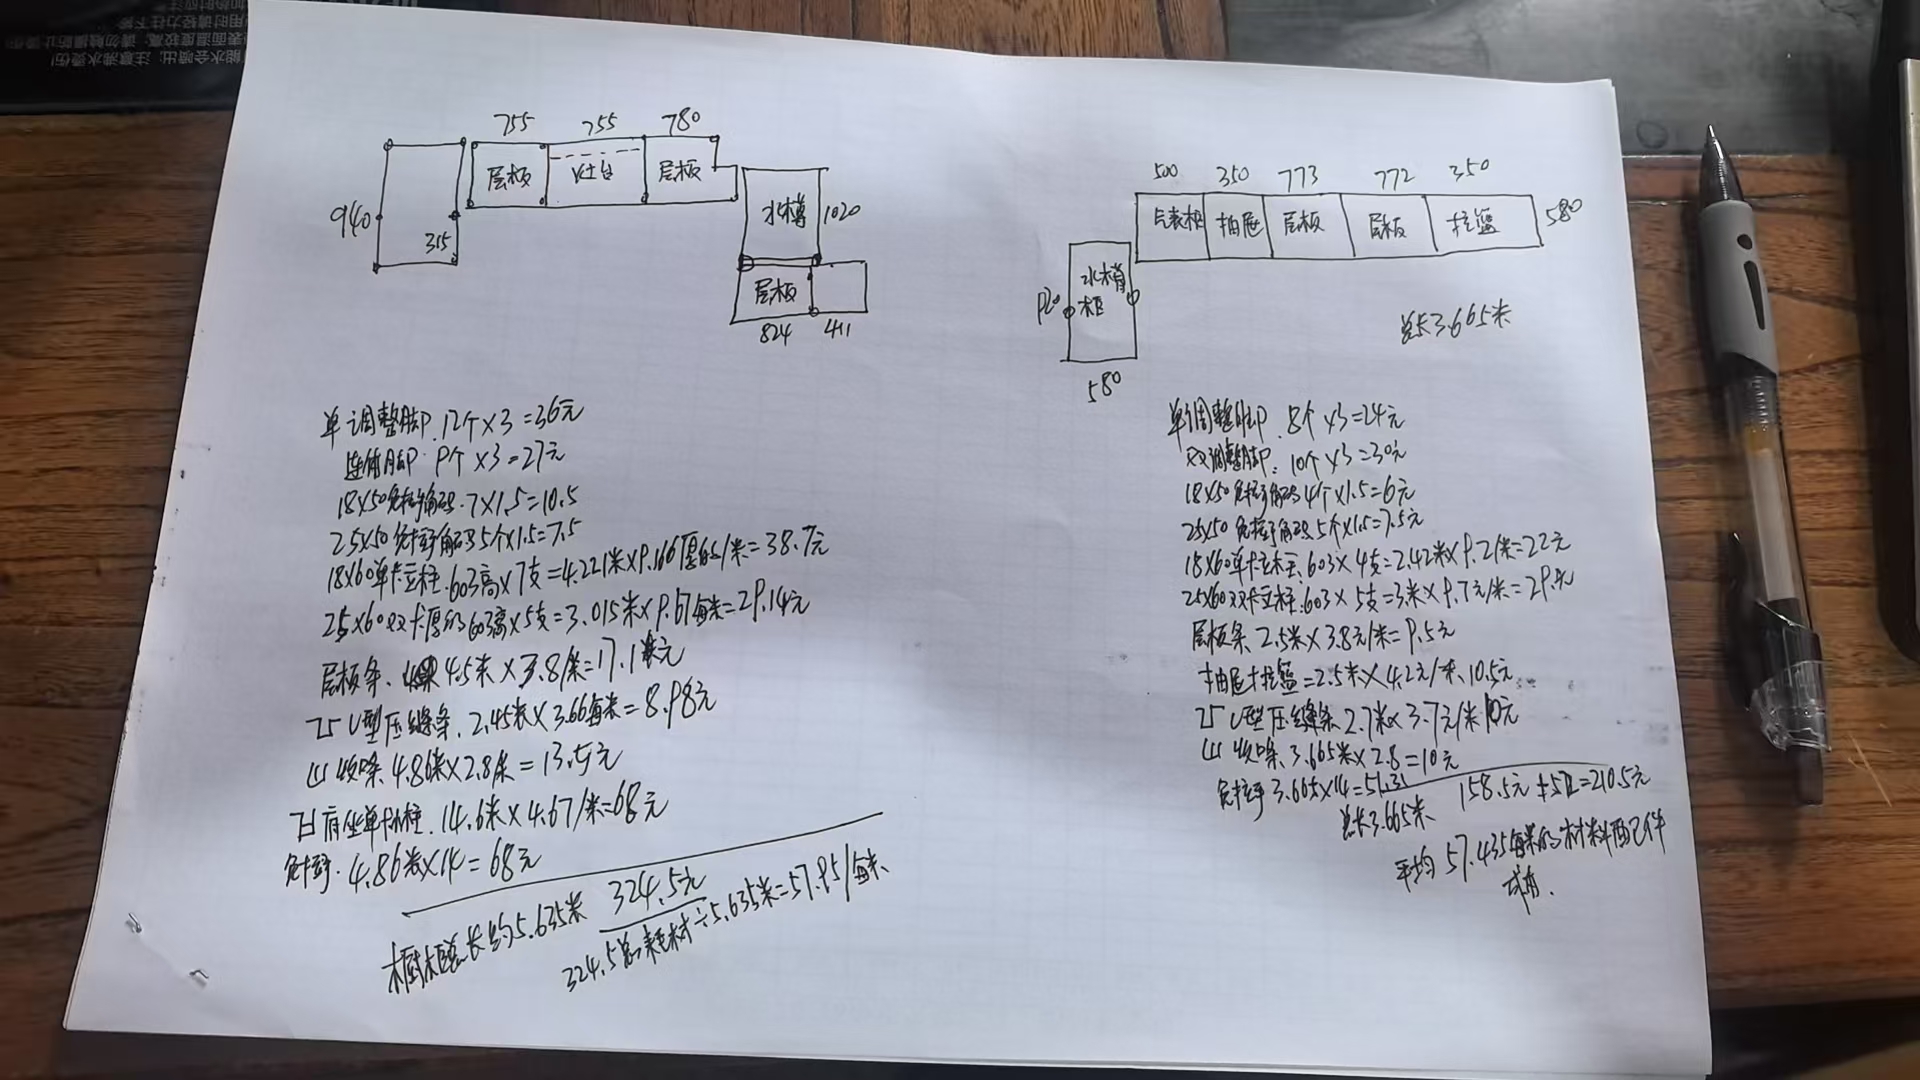 755 755 780
层板 灶台 层板
940
315
水槽 1020
层板
824 411
单调整脚.12个×3=36元
连体脚.9个×3=27元
18×50免打孔角码.7×1.5=10.5
25×50免打孔角码5个×1.5=7.5
18×60单卡立柱.603高×7支=4.221米×9.166厚的/米=38.7元
25×60双卡厚的603高×5支=3.015米×9.67每米=29.14元
层板条. 4.5米×3.8/米=17.1元
25U型压缝条.2.45米×3.66每米=8.98元
山收口条4.86米×2.8/米=13.5元
14.6米×4.67/米=68元
免拉手.4.86米×14=68元
橱柜总长约5.635米 324.5元
324.5总耗材÷5.635米=57.85/每米
500 350 773 772 350
抽屉 层板 层板 拉篮 580
920 水槽柜
580
总长3.665米
单调整脚.8个×3=24元
双调整脚.10个×3=30元
18×50免打孔角码4个×1.5=6元
25×50免打孔角码5个×1.5=7.5元
18×60单卡立柱.603×4支=2.42米×9.2/米=22元
25×60双卡立柱.603×5支=3米×9.7元/米=29.
层板条.2.5米×3.8元/米=9.5元
抽屉拉篮=2.5米×4.2元/米.10.5元
25U型压缝条2.7米×3.7元/米10元
山收口条.3.665米×2.8=10元
免拉手3.665×14=51.31
总长3.665米 158.5元+52=210.5元
平均57.435每米的材料配件
成本.